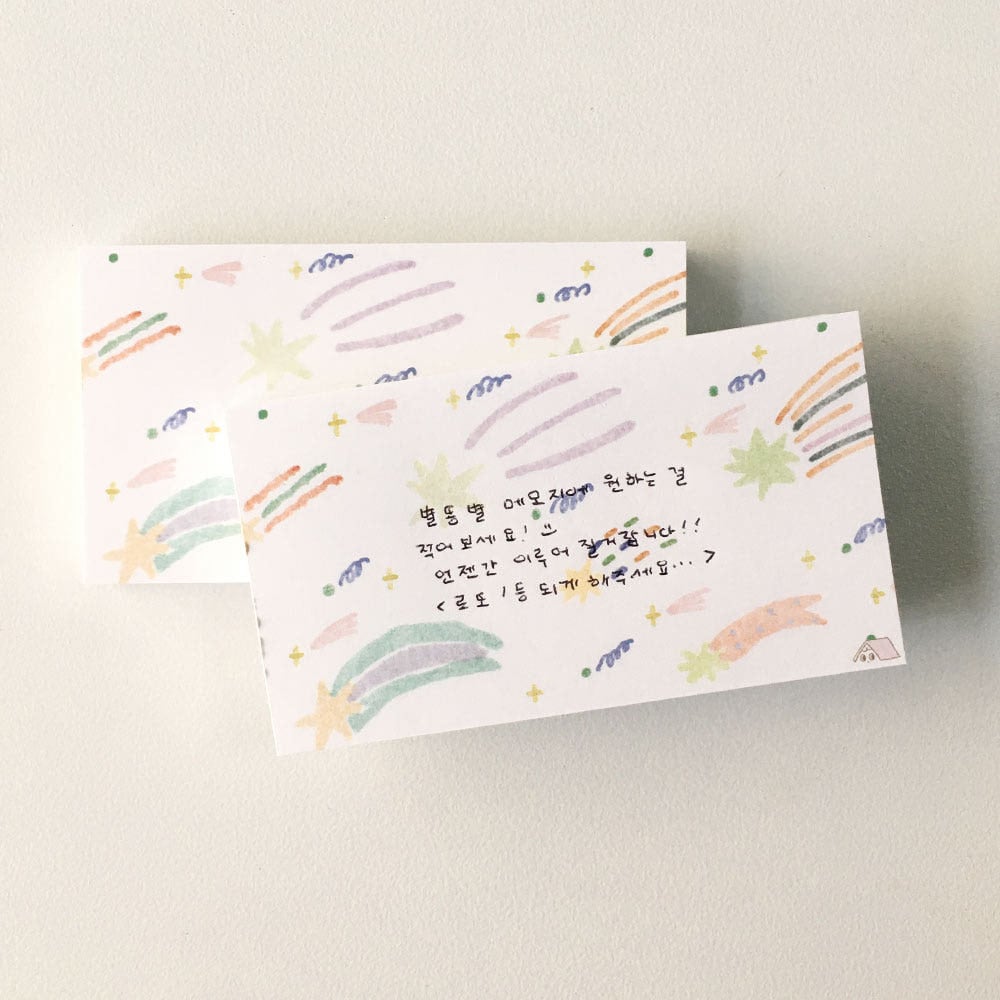 별똥별 메모지에 원하는 걸
적어보세요! :)
언젠간 이루어 질거랍니다!!
<로또 1등 되게 해주세요...>